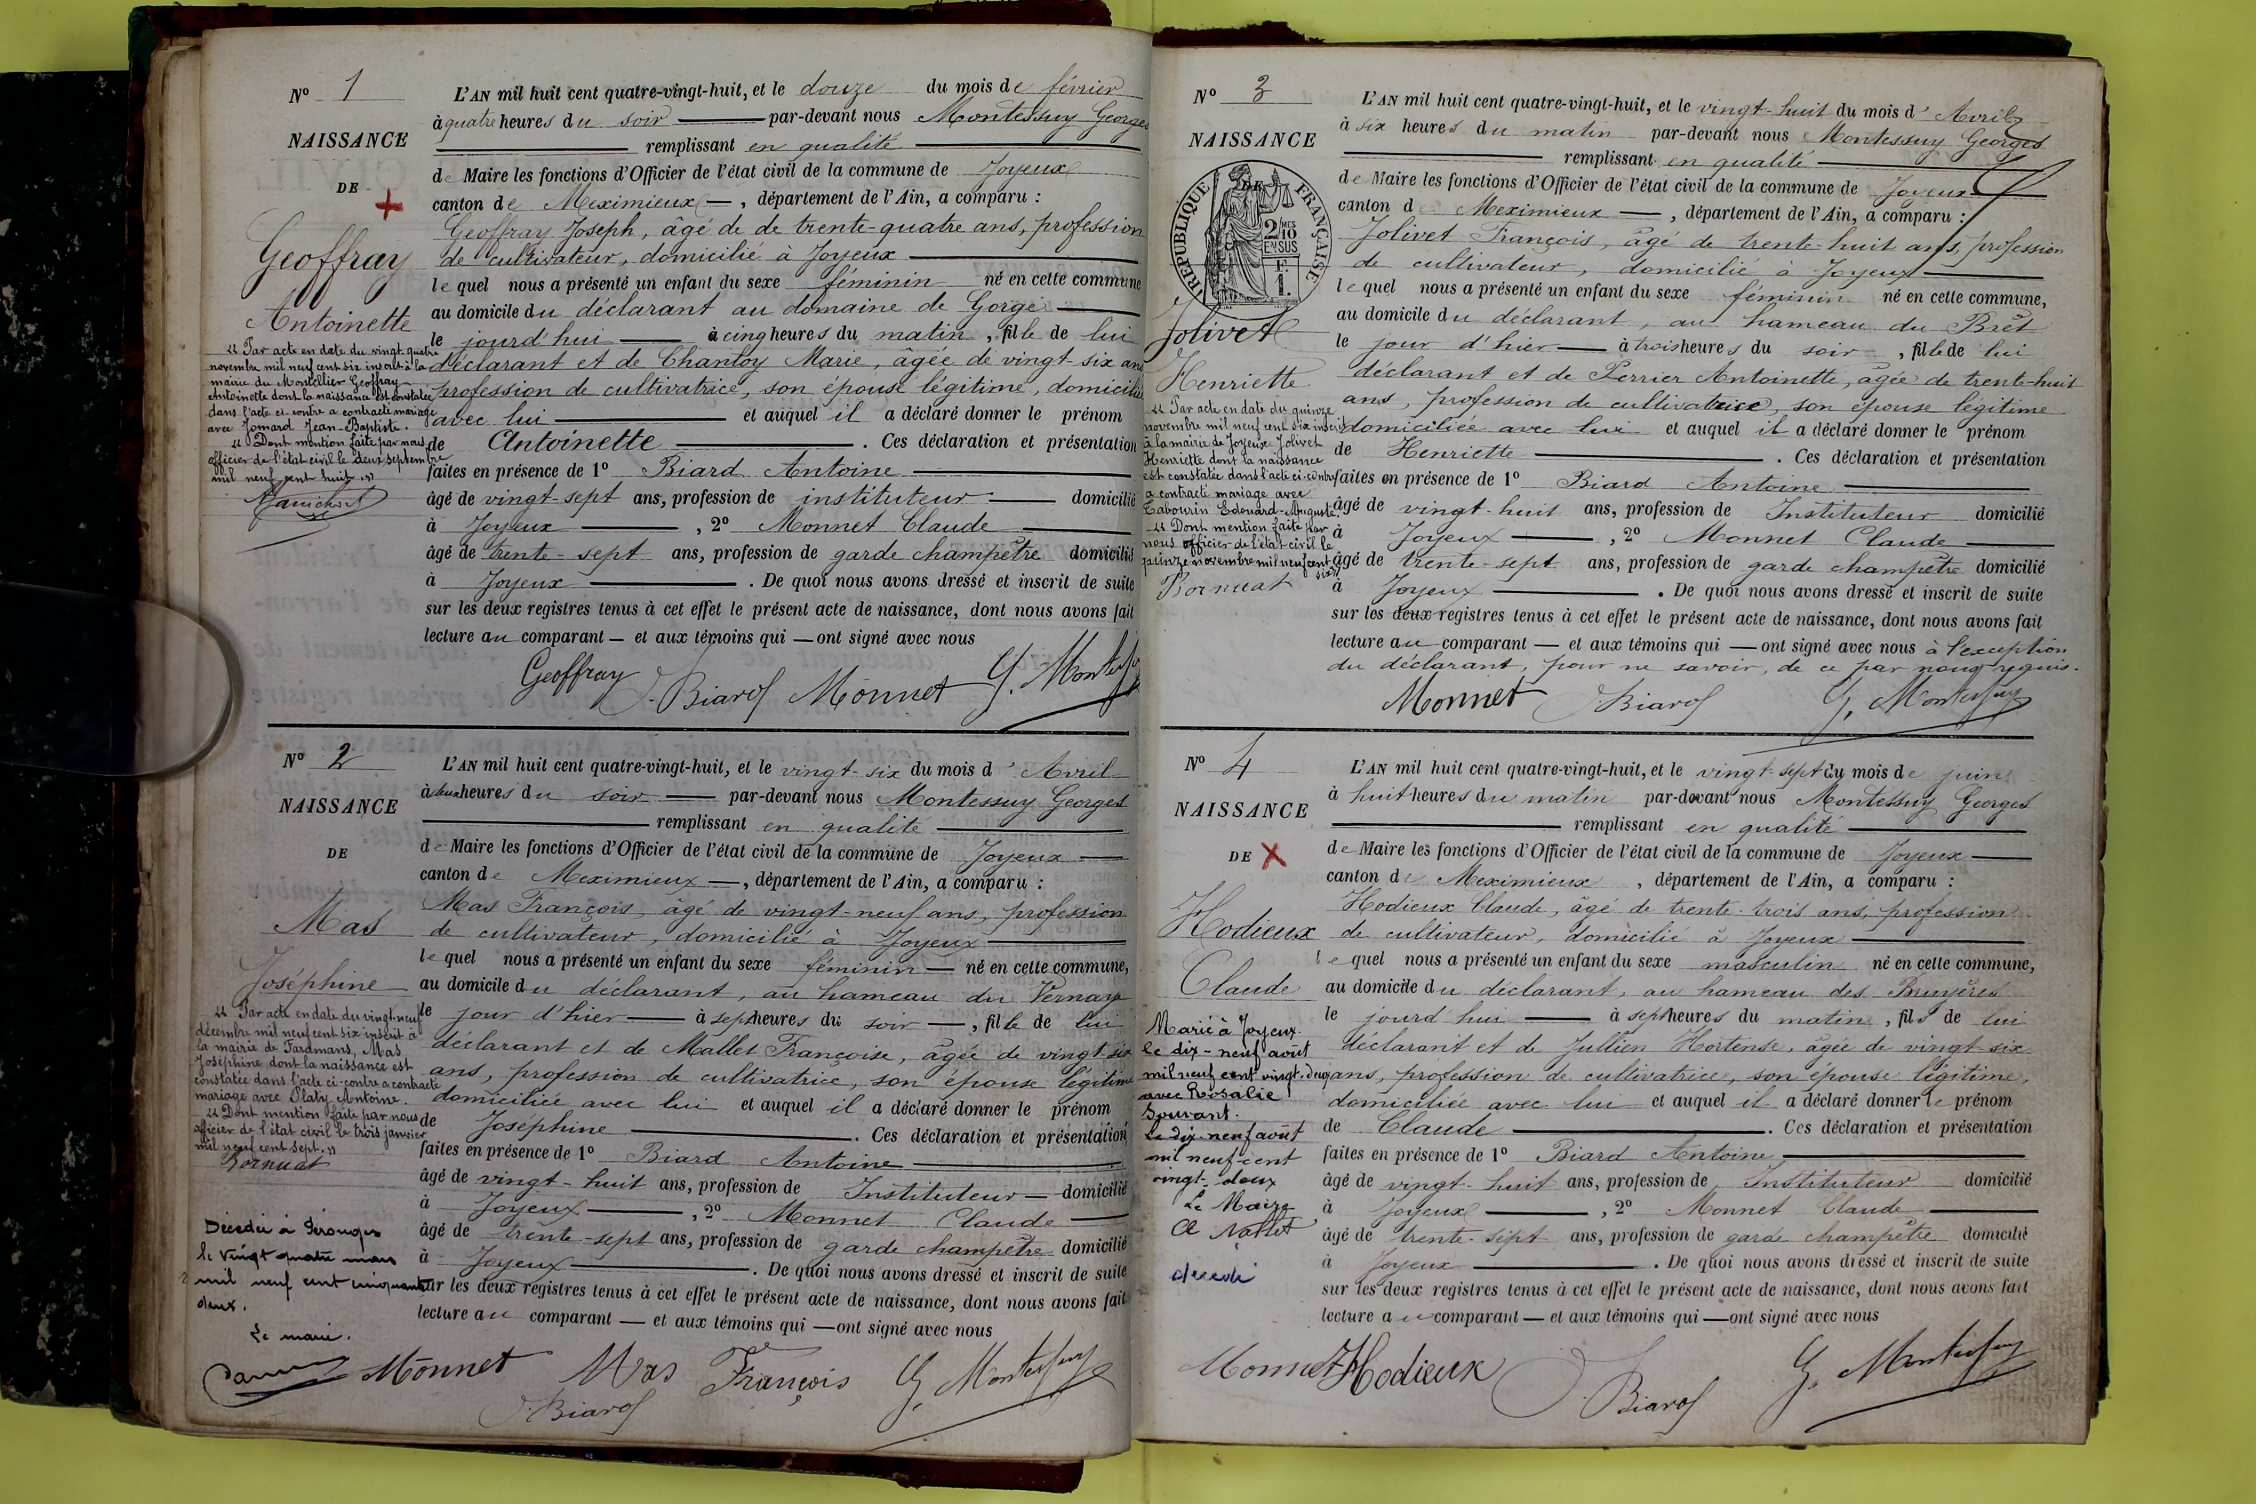 Nº 1
NAISSANCE
DE
Geoffray
Antoinette
"Par acte en date du vingt quatre
novembre mil neuf cent six inscrit à la
mairie du Montellier Geoffray
Antoinette dont la naissance est constatée
dans l'acte ci-contre a contracté mariage
avec Jomard Jean-Baptiste.
"Dont mention faite par nous
officier de l'état civil le deux septembre
mil neuf cent huit."
L'AN mil huit cent quatre-vingt-huit, et le douze du mois de février
à quatre heures du soir — par-devant nous Montessuy Georges
— remplissant en qualité —
de Maire les fonctions d'Officier de l'état civil de la commune de Joyeux
canton de Meximieux —, département de l'Ain, a comparu :
Geoffray Joseph, âgé de de trente-quatre ans, profession
de cultivateur, domicilié à Joyeux —
lequel nous a présenté un enfant du sexe féminin né en cette commune
au domicile du déclarant au domaine de Gorge —
le jourd'hui — à cinq heures du matin, fille de lui
déclarant et de Chanloy Marie, âgée de vingt-six ans
profession de cultivatrice, son épouse légitime, domiciliée
avec lui — et auquel il a déclaré donner le prénom
de Antoinette — . Ces déclaration et présentation
faites en présence de 1º Biard Antoine —
âgé de vingt-sept ans, profession de instituteur — domicilié
à Joyeux —, 2º Monnet Claude —
âgé de trente-sept ans, profession de garde champêtre domicilié
à Joyeux — . De quoi nous avons dressé et inscrit de suite
sur les deux registres tenus à cet effet le présent acte de naissance, dont nous avons fait
lecture au comparant — et aux témoins qui — ont signé avec nous
Geoffray J. Biard Monnet G. Montessuy
Nº 2
NAISSANCE
DE
Mas
Joséphine
"Par acte en date du vingt-neuf
décembre mil neuf cent six inscrit à
la mairie de Faramans, Mas
Joséphine dont la naissance est
constatée dans l'acte ci-contre a contracté
mariage avec Platy Antoine.
"Dont mention faite par nous
officier de l'état civil le trois janvier
mil neuf cent sept."
Bornuat
Décédée à Pérouges
le vingt quatre mars
mil neuf cent cinquante
deux.
Le maire.
L'AN mil huit cent quatre-vingt-huit, et le vingt-six du mois d'Avril
à heures du soir — par-devant nous Montessuy Georges
— remplissant en qualité —
de Maire les fonctions d'Officier de l'état civil de la commune de Joyeux —
canton de Meximieux —, département de l'Ain, a comparu :
Mas François, âgé de vingt-neuf ans, profession
de cultivateur, domicilié à Joyeux —
lequel nous a présenté un enfant du sexe féminin — né en cette commune,
au domicile du déclarant, au hameau du Vernay
le jour d'hier — à sept heures du soir —, fille de lui
déclarant et de Mallet Françoise, âgée de vingt-six
ans, profession de cultivatrice, son épouse légitime
domiciliée avec lui et auquel il a déclaré donner le prénom
de Joséphine — . Ces déclaration et présentation
faites en présence de 1º Biard Antoine —
âgé de vingt-huit ans, profession de Instituteur — domicilié
à Joyeux —, 2º Monnet Claude —
âgé de trente-sept ans, profession de garde champêtre domicilié
à Joyeux — . De quoi nous avons dressé et inscrit de suite
sur les deux registres tenus à cet effet le présent acte de naissance, dont nous avons fait
lecture au comparant — et aux témoins qui — ont signé avec nous
Monnet Mas François G. Montessuy
J. Biard
Nº 3
NAISSANCE
DE
RÉPUBLIQUE FRANÇAISE
2/10 MES
EN SUS
Jolivet
Henriette
"Par acte en date du quinze
novembre mil neuf cent six inscrit
à la mairie de Joyeux Jolivet
Henriette dont la naissance
est constatée dans l'acte ci-contre
a contracté mariage avec
Tabourin Edouard-Auguste.
"Dont mention faite par
nous officier de l'état civil le
quinze novembre mil neuf cent
six"
Bornuat
L'AN mil huit cent quatre-vingt-huit, et le vingt-huit du mois d'Avril
à six heures du matin par-devant nous Montessuy Georges
— remplissant en qualité —
de Maire les fonctions d'Officier de l'état civil de la commune de Joyeux
canton de Meximieux —, département de l'Ain, a comparu :
Jolivet François, âgé de trente-huit ans, profession
de cultivateur, domicilié à Joyeux —
lequel nous a présenté un enfant du sexe féminin né en cette commune,
au domicile du déclarant, au hameau du Brêt
le jour d'hier — à trois heures du soir, fille de lui
déclarant et de Perrier Antoinette, âgée de trente-huit
ans, profession de cultivatrice, son épouse légitime
domiciliée avec lui et auquel il a déclaré donner le prénom
de Henriette — . Ces déclaration et présentation
faites en présence de 1º Biard Antoine —
âgé de vingt-huit ans, profession de Instituteur domicilié
à Joyeux —, 2º Monnet Claude —
âgé de trente-sept ans, profession de garde champêtre domicilié
à Joyeux — . De quoi nous avons dressé et inscrit de suite
sur les deux registres tenus à cet effet le présent acte de naissance, dont nous avons fait
lecture au comparant — et aux témoins qui — ont signé avec nous à l'exception
du déclarant, pour ne savoir, de ce par nous requis.
Monnet J. Biard G. Montessuy
Nº 4
NAISSANCE
DE
Hodieux
Claude
Marié à Joyeux
le dix-neuf août
mil neuf cent vingt-deux
avec Rosalie
Gouvant.
Le dix-neuf août
mil neuf cent
vingt-deux
Le Maire
décédé
L'AN mil huit cent quatre-vingt-huit, et le vingt-sept du mois de juin
à huit heures du matin par-devant nous Montessuy Georges
— remplissant en qualité —
de Maire les fonctions d'Officier de l'état civil de la commune de Joyeux —
canton de Meximieux, département de l'Ain, a comparu :
Hodieux Claude, âgé de trente-trois ans, profession
de cultivateur, domicilié à Joyeux —
lequel nous a présenté un enfant du sexe masculin né en cette commune,
au domicile du déclarant, au hameau des Bruyères
le jourd'hui — à sept heures du matin, fils de lui
déclarant et de Jullien Hortense, âgée de vingt-six
ans, profession de cultivatrice, son épouse légitime,
domiciliée avec lui et auquel il a déclaré donner le prénom
de Claude — . Ces déclaration et présentation
faites en présence de 1º Biard Antoine —
âgé de vingt-huit ans, profession de Instituteur domicilié
à Joyeux —, 2º Monnet Claude —
âgé de trente-sept ans, profession de garde champêtre domicilié
à Joyeux — . De quoi nous avons dressé et inscrit de suite
sur les deux registres tenus à cet effet le présent acte de naissance, dont nous avons fait
lecture au comparant — et aux témoins qui — ont signé avec nous
Monnet Hodieux J. Biard G. Montessuy